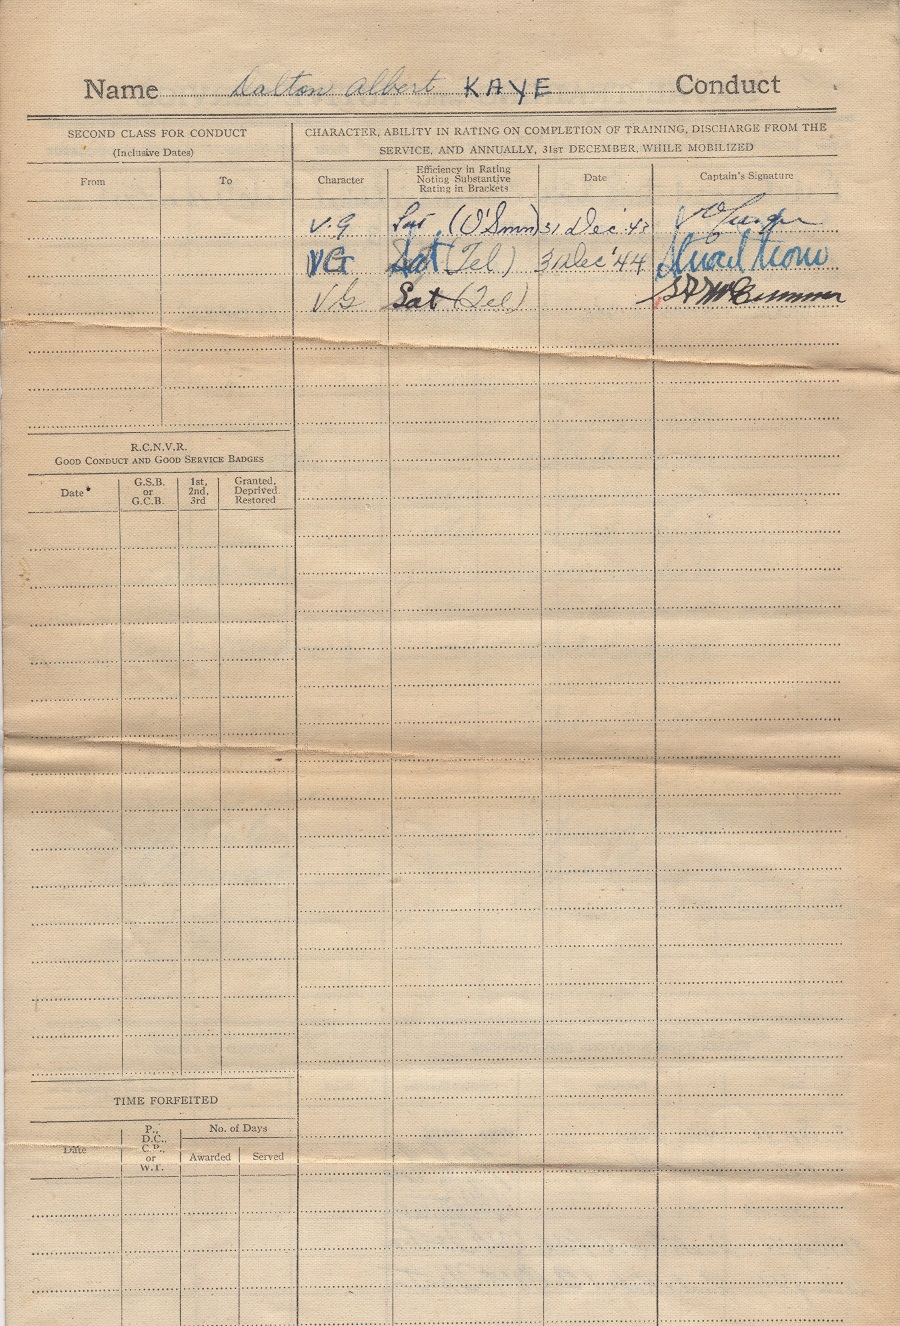 Name Dalton Albert KAYE Conduct
SECOND CLASS FOR CONDUCT
(Inclusive Dates)
From To
CHARACTER, ABILITY IN RATING ON COMPLETION OF TRAINING, DISCHARGE FROM THE
SERVICE, AND ANNUALLY, 31ST DECEMBER, WHILE MOBILIZED
Character
Efficiency in Rating
Noting Substantive
Rating in Brackets
Date
Captain's Signature
V.G Sat. (O'Smn) 31 Dec '43
VG Sat (Tel) 31 Dec '44
VG Sat (Tel)
R.C.N.V.R.
GOOD CONDUCT AND GOOD SERVICE BADGES
Date
G.S.B.
or
G.C.B.
1st,
2nd,
3rd
Granted,
Deprived
Restored
TIME FORFEITED
Date
P.,
D.C.,
C.P.,
or
W.T.
No. of Days
Awarded Served